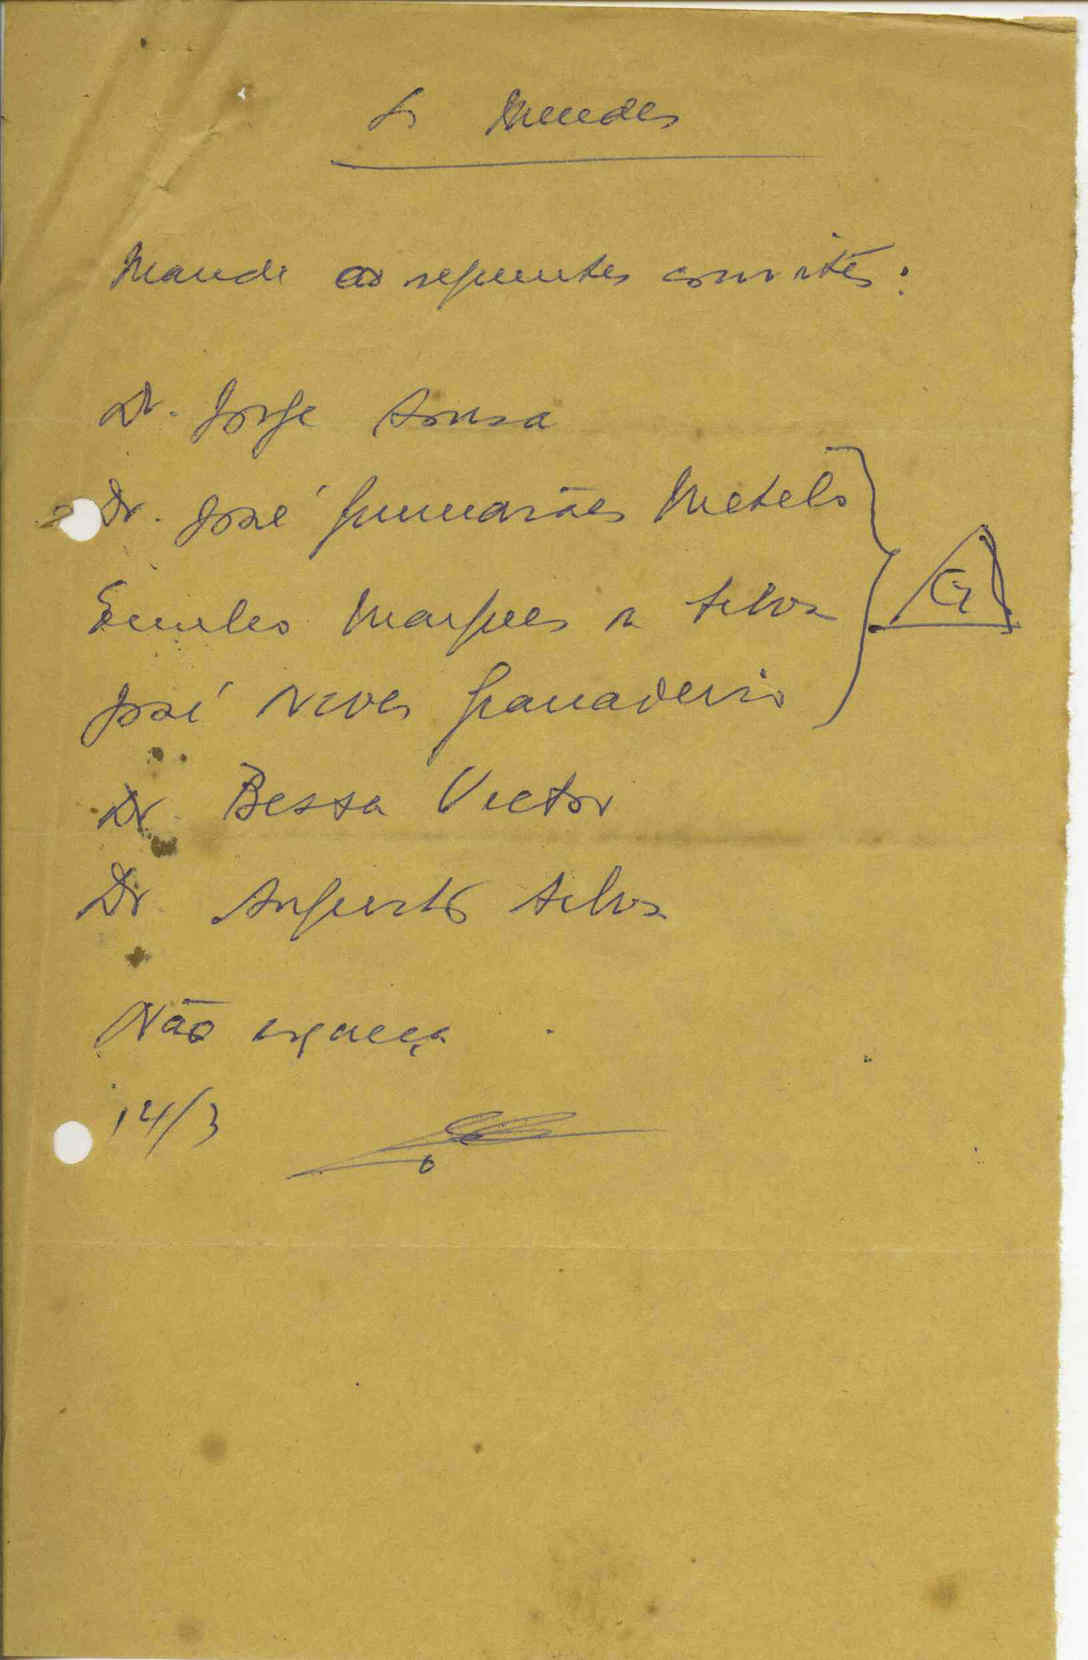 Sr Mendes
Mande os seguintes convites:
Dr. Jorge Sousa
Dr. José Guimarães Metelo
Emilio Marques da Silva
José Neves Granadeiro
Dr. Bessa Victor
Dr Augusto Silva
Não esqueça
14/3